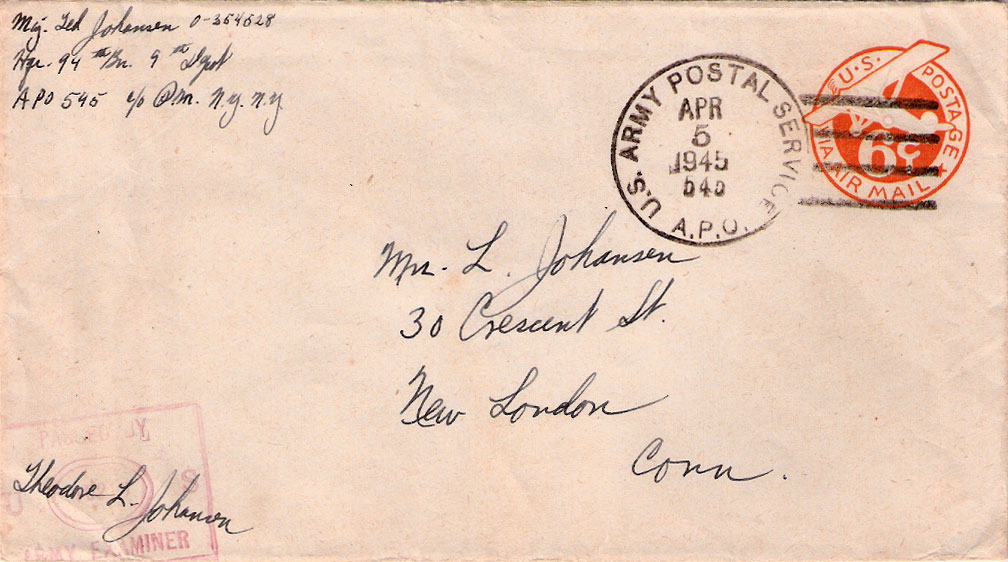 Maj. Ted Johansen O-354528
Hq. 94th Bn. 9th Depot
APO 545 c/o P.M. N.Y. N.Y.
U.S. ARMY POSTAL SERVICE
APR
5
1945
A.P.O.
U.S. POSTAGE
6¢
VIA AIR MAIL
Mr. L. Johansen
30 Crescent St.
New London
Conn.
PASSED BY
U S
Theodore L. Johansen
ARMY EXAMINER